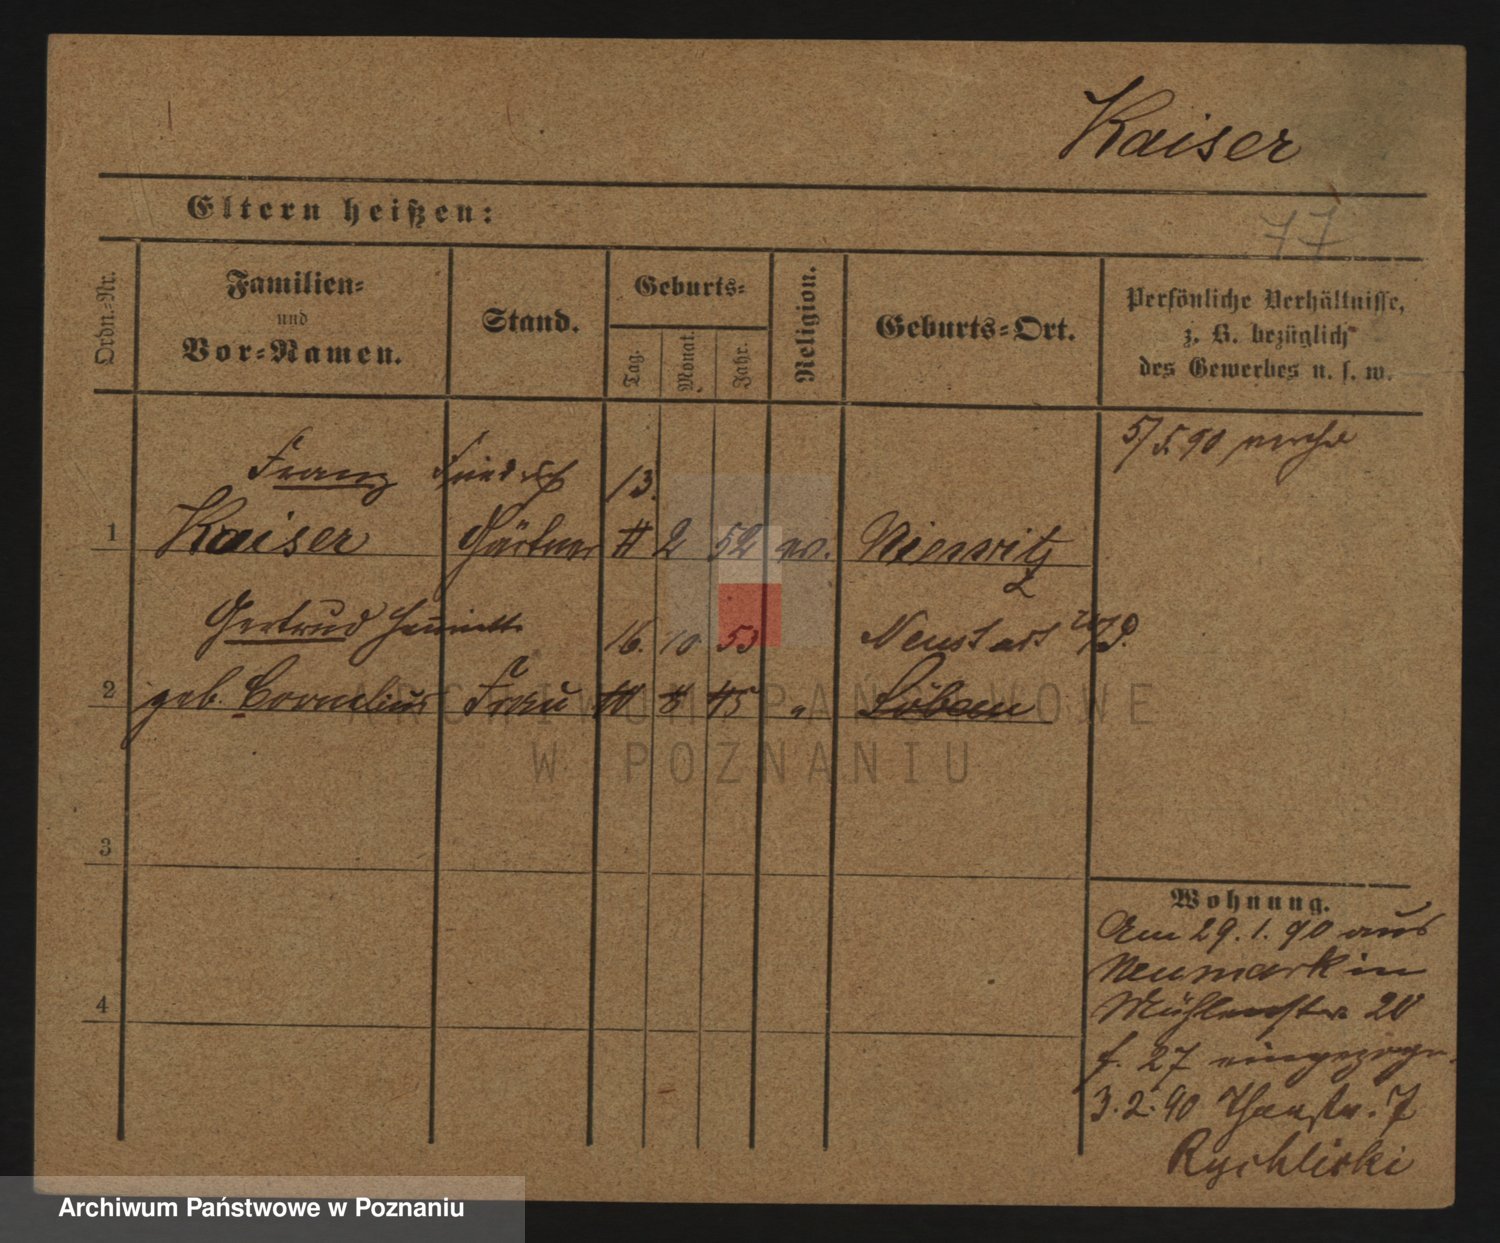 Kaiser
Eltern heißen:
77
Ordn.-Nr.
Familien-
und
Vor-Namen.
Stand.
Geburts-
Tag.
Monat.
Jahr.
Religion.
Geburts-Ort.
Persönliche Verhältnisse,
z. B. bezüglich
des Gewerbes u. s. w.
5/5.90
Franz Friedrich 13.
1 Kaiser Gärtner 2 52 Nieswitz
Gertrud 16. 10 53 Neustadt
2 geb. Cornelius Frau " Löbau
3
4
Wohnung.
Am 29.1.90 aus
Neumark in
Mühlenstr 20
f. 27
3.2.90 7
Rychlicki
ARCHIWUM PAŃSTWOWE
W POZNANIU
Archiwum Państwowe w Poznaniu